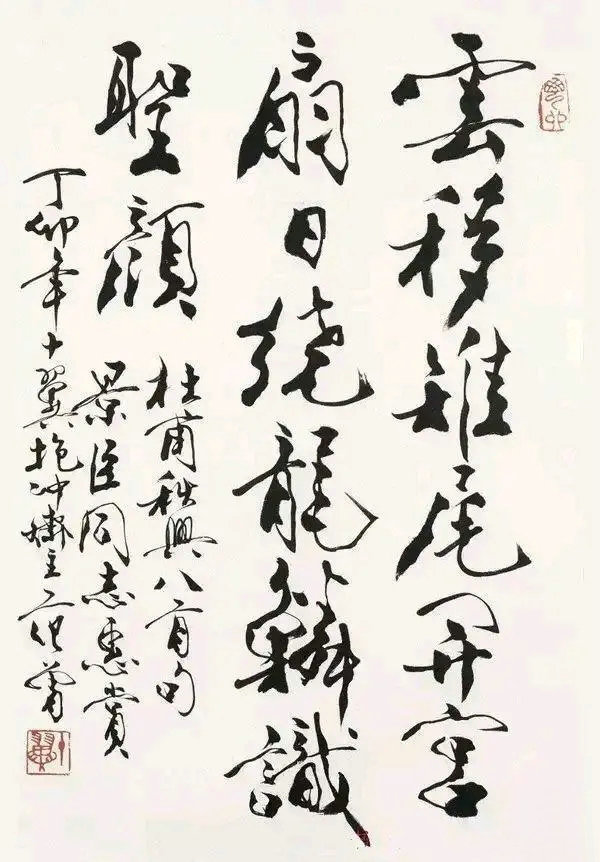 雲移雉尾開宮
扇日繞龍鱗識
聖顏
杜甫秋興八首句
景臣同志惠賞
丁卯年十翼抱冲齋主范曾
十翼